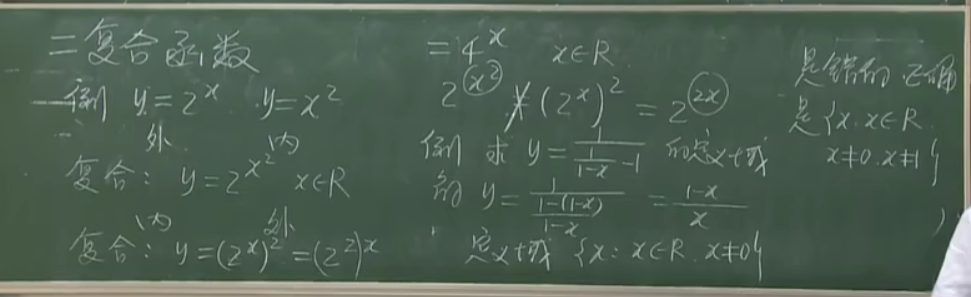 二 复合函数
例 y=2^x y=x^2
外 内
复合: y=2^{x^2} x∈R
内 外
复合: y=(2^x)^2=(2^2)^x
=4^x x∈R
2^{x^2} ≠ (2^x)^2 = 2^{2x}
例 求 y=\frac{1}{\frac{1}{1-x}-1} 的定义域
解 y=\frac{1}{\frac{1-(1-x)}{1-x}} = \frac{1-x}{x}
定义域 {x: x∈R. x≠0}
是错的.正确
是{x: x∈R.
x≠0. x≠1}